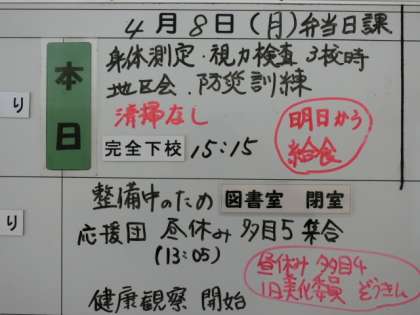 4月8日(月)弁当日課
本日
身体測定・視力検査 3校時
地区会・防災訓練
清掃なし
明日から
給食
完全下校 15:15
り
整備中のため 図書室 閉室
応援団 昼休み 多目5 集合
(13:05)
り
昼休み 多目4
1月美化委員 ぞうきん
健康観察 開始